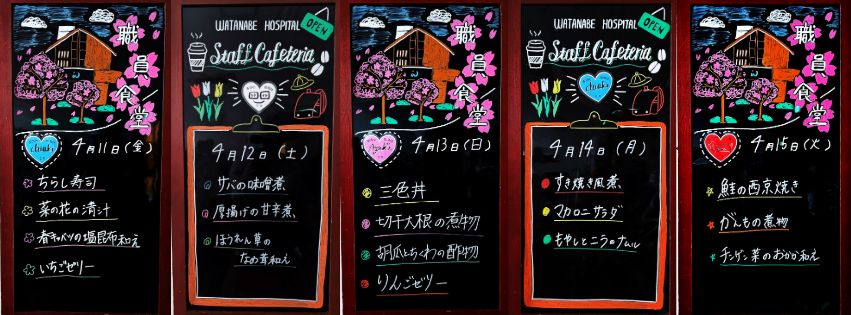 職員食堂
4月11日(金)
ちらし寿司
菜の花の清汁
春キャベツの塩昆布和え
いちごゼリー
WATANABE HOSPITAL
OPEN
Staff Cafeteria
4月12日(土)
サバの味噌煮
厚揚げの甘辛煮
ほうれん草の
なめ茸和え
職員食堂
4月13日(日)
三色丼
切干大根の煮物
胡瓜とちくわの酢物
りんごゼリー
WATANABE HOSPITAL
OPEN
Staff Cafeteria
4月14日(月)
すき焼き風煮
マカロニサラダ
もやしとニラのナムル
職員食堂
4月15日(火)
鮭の西京焼き
がんもの煮物
チンゲン菜のおかか和え